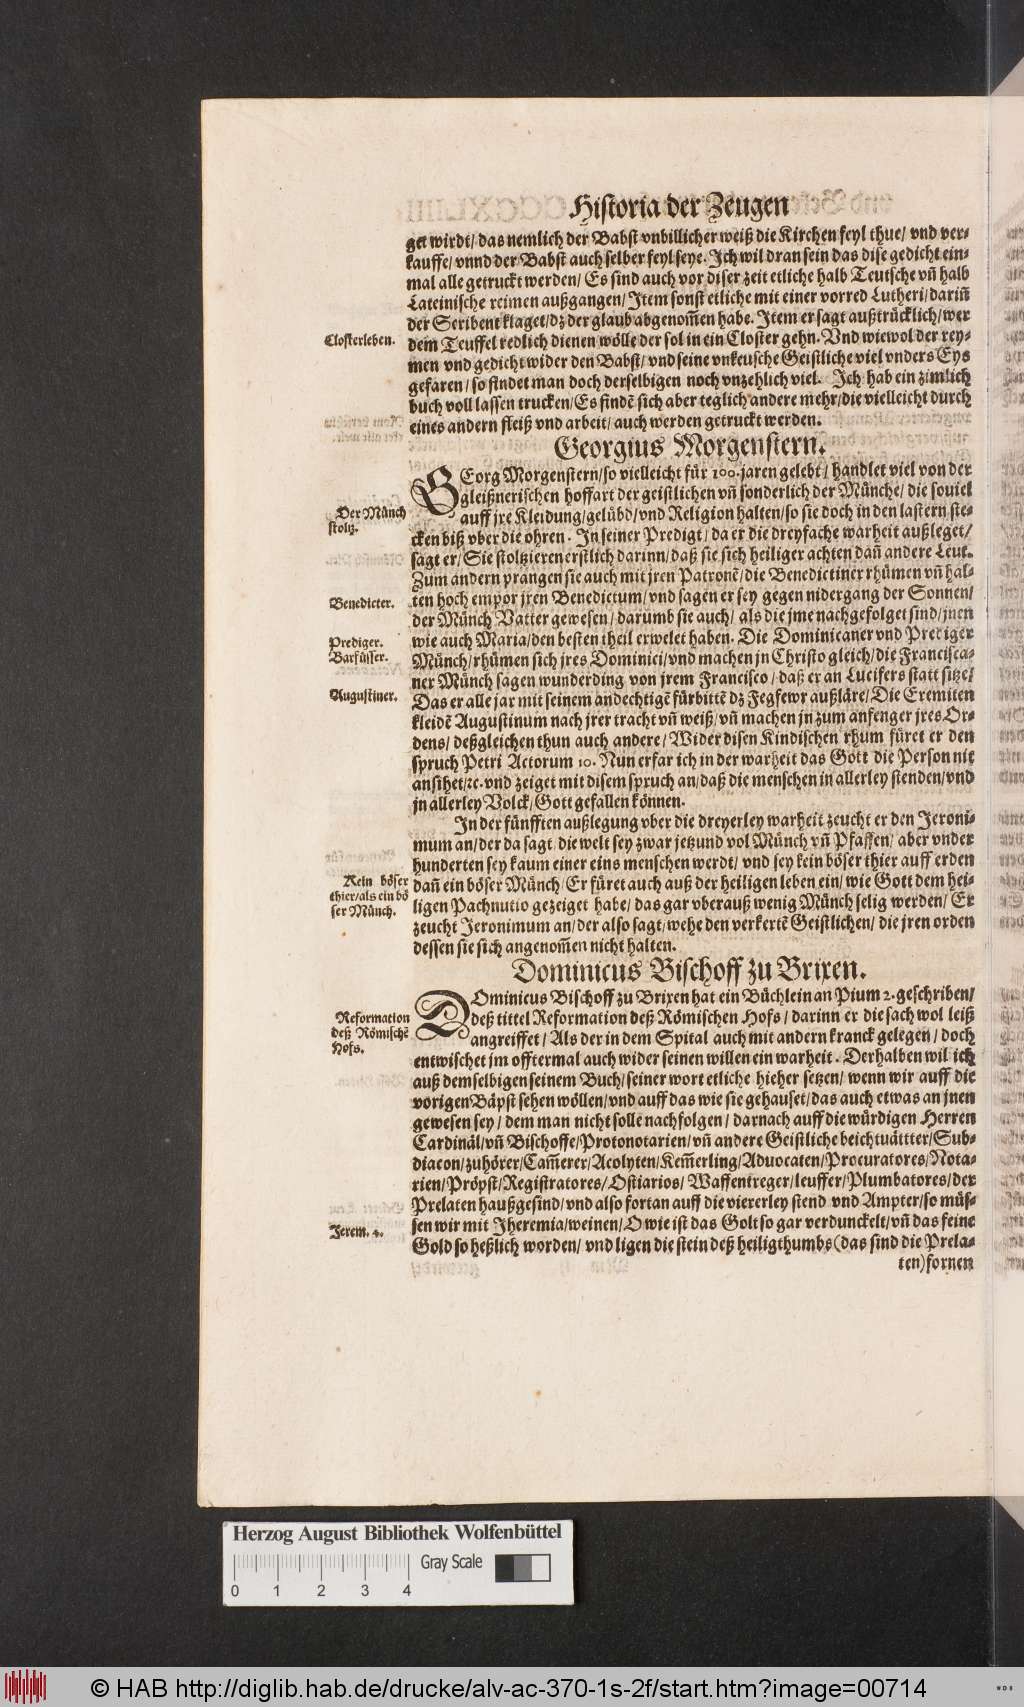 Historia der Zeugen
get wirdt/ das nemlich der Babst vnbillicher weiß die Kirchen feyl thue/ vnd ver-
kauffe/ vnnd der Babst auch selber feyl seye. Ich wil dran sein das dise gedicht ein-
mal alle getruckt werden/ Es sind auch vor diser zeit etliche halb Teutsche vñ halb
Lateinische reimen außgangen/ Item sonst etliche mit einer vorred Lutheri/ dariñ
der Scribent klaget/ dz der glaub abgenom̃en habe. Item er sagt außtrücklich/ wer
Closterleben.
dem Teuffel redlich dienen wölle der sol in ein Closter gehn. Vnd wiewol der rey-
men vnd gedicht wider den Babst/ vnd seine vnkeusche Geistliche viel vnders Eys
gefaren/ so findet man doch derselbigen noch vnzehlich viel. Ich hab ein zimlich
buch voll lassen trucken/ Es findẽ sich aber teglich andere mehr/ die vielleicht durch
eines andern fleiß vnd arbeit/ auch werden getruckt werden.
Georgius Morgenstern.
GEorg Morgenstern/ so vielleicht für 100. jaren gelebt/ handlet viel von der
gleißnerischen hoffart der geistlichen vñ sonderlich der Münche/ die souiel
Der Münch
stoltz.
auff jre Kleidung/ gelübd/ vnd Religion halten/ so sie doch in den lastern ste-
cken biß vber die ohren. In seiner Predigt/ da er die dreyfache warheit außleget/
sagt er/ Sie stoltzieren erstlich darinn/ daß sie sich heiliger achten dañ andere Leut.
Zum andern prangen sie auch mit jren Patronẽ/ die Benedictiner rhümen vñ hal-
Benedicter.
ten hoch empor jren Benedictum/ vnd sagen er sey gegen nidergang der Sonnen/
der Münch Vatter gewesen/ darumb sie auch/ als die jme nachgefolget sind/ jnen
Prediger.
wie auch Maria/ den besten theil erwelet haben. Die Dominicaner vnd Prediger
Barfüsser.
Münch/ rhümen sich jres Dominici/ vnd machen jn Christo gleich/ die Francisca-
ner Münch sagen wunderding von jrem Francisco/ daß er an Lucifers statt sitze/
Augustiner.
Das er alle jar mit seinem andechtigẽ fürbittẽ dz Fegfewr außläre/ Die Eremiten
kleidẽ Augustinum nach jrer tracht vñ weiß/ vñ machen jn zum anfenger jres Or-
dens/ deßgleichen thun auch andere/ Wider disen Kindischen rhum füret er den
spruch Petri Actorum 10. Nun erfar ich in der warheit das Gott die Person nit
ansihet/ ꝛc. vnd zeiget mit disem spruch an/ daß die menschen in allerley stenden/ vnd
jn allerley Volck/ Gott gefallen können.
In der fünfften außlegung vber die dreyerley warheit zeucht er den Jeroni-
mum an/ der da sagt/ die welt sey zwar jetzund vol Münch vñ Pfaffen/ aber vnder
hunderten sey kaum einer eins menschen werdt/ vnd sey kein böser thier auff erden
Kein böser
thier/ als ein bö
ser Münch.
dañ ein böser Münch/ Er füret auch auß der heiligen leben ein/ wie Gott dem hei-
ligen Pachnutio gezeiget habe/ das gar vberauß wenig Münch selig werden/ Er
zeucht Jeronimum an/ der also sagt/ wehe den verkertẽ Geistlichen/ die jren orden
dessen sie sich angenom̃en nicht halten.
Dominicus Bischoff zu Brixen.
DOminicus Bischoff zu Brixen hat ein Büchlein an Pium 2. geschriben/
Reformation
deß Römischẽ
Hofs.
deß tittel Reformation deß Römischen Hofs/ darinn er die sach wol leiß
angreiffet/ Als der in dem Spital auch mit andern kranck gelegen/ doch
entwischet jm offtermal auch wider seinen willen ein warheit. Derhalben wil ich
auß demselbigen seinem Buch/ seiner wort etliche hieher setzen/ wenn wir auff die
vorigen Bäpst sehen wöllen/ vnd auff das wie sie gehauset/ das auch etwas an jnen
gewesen sey/ dem man nicht solle nachfolgen/ darnach auff die würdigen Herren
Cardinäl/ vñ Bischoffe/ Protonotarien/ vñ andere Geistliche beichtuättter/ Sub-
diacon/ zuhörer/ Cam̃erer/ Acolyten/ Kem̃erling/ Aduocaten/ Procuratores/ Nota-
rien/ Pröpst/ Registratores/ Ostiarios/ Waffentreger/ leuffer/ Plumbatores/ der
Prelaten haußgesind/ vnd also fortan auff die viererley stend vnd Ampter/ so müs-
Jerem. 4.
sen wir mit Jheremia/ weinen/ O wie ist das Golt so gar verdunckelt/ vñ das feine
Gold so heßlich worden/ vnd ligen die stein deß heiligthumbs (das sind die Prela-
ten) fornen
Herzog August Bibliothek Wolfenbüttel
Gray Scale
0 1 2 3 4
© HAB http://diglib.hab.de/drucke/alv-ac-370-1s-2f/start.htm?image=00714